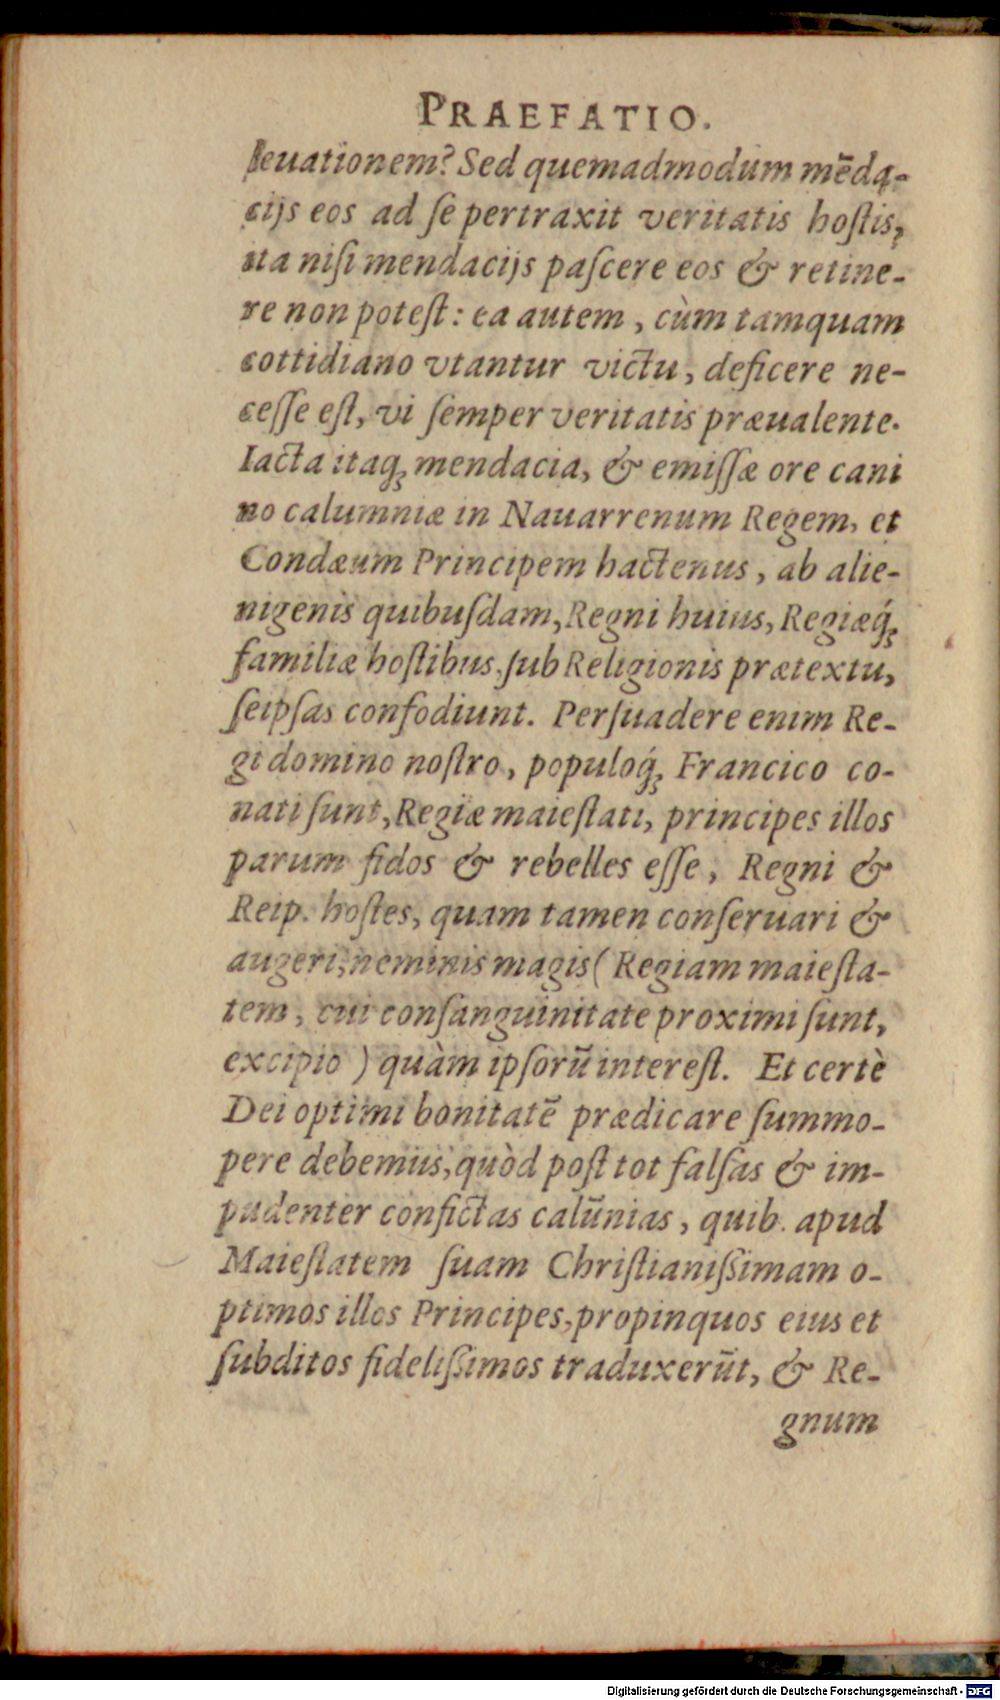 PRAEFATIO.
leuationem? Sed quemadmodum mēda-
cijs eos ad ſe pertraxit veritatis hoſtis,
ita niſi mendacijs paſcere eos & retine-
re non poteſt: ea autem, cùm tamquam
cottidiano vtantur victu, deficere ne-
ceſſe eſt, vi ſemper veritatis præualente.
Iacta itaq; mendacia, & emiſſæ ore cani
no calumniæ in Nauarrenum Regem, et
Condæum Principem hactenus, ab alie-
nigenis quibuſdam, Regni huius, Regiæq́;
familiæ hoſtibus, ſub Religionis prætextu,
ſeipſas confodiunt. Perſuadere enim Re-
gi domino noſtro, populoq́; Francico co-
nati ſunt, Regiæ maieſtati, principes illos
parum fidos & rebelles eſſe, Regni &
Reip. hoſtes, quam tamen conſeruari &
augeri, neminis magis (Regiam maieſta-
tem, cui conſanguinitate proximi ſunt,
excipio) quàm ipſorū intereſt. Et certè
Dei optimi bonitatē prædicare ſummo-
pere debemus, quòd poſt tot falſas & im-
pudenter confictas calūnias, quib. apud
Maieſtatem ſuam Chriſtianiſsimam o-
ptimos illos Principes, propinquos eius et
ſubditos fideliſsimos traduxerūt, & Re-
gnum
Digitalisierung gefördert durch die Deutsche Forschungsgemeinschaft - DFG